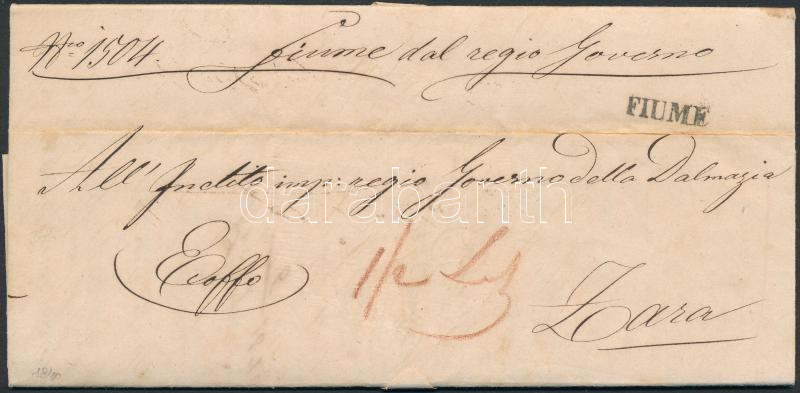 Nro 1504. Fiume dal regio Governo
FIUME
All' Inclito imp: regio Governo della Dalmazia
darabanth
Exoffo
1/2 
Zara